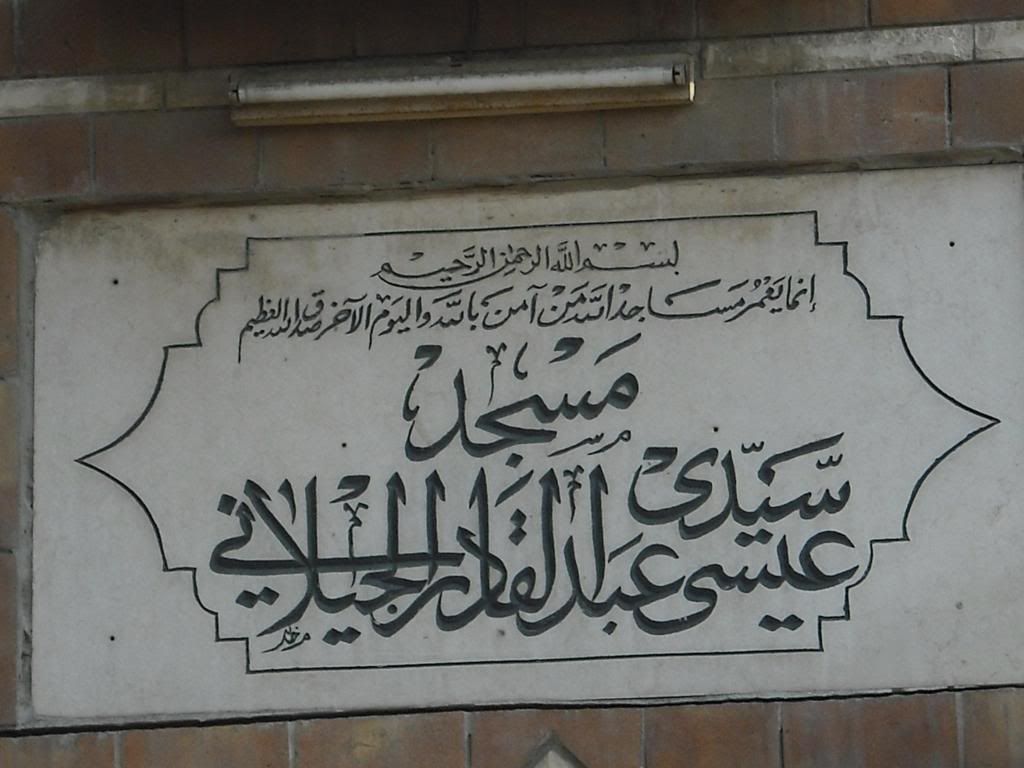 بسم الله الرحمن الرحيم
إنما يعمر مساجد الله من آمن بالله واليوم الآخر صدق الله العظيم
مسجد
سيدى
عيسى عبد القادر الجيلاني